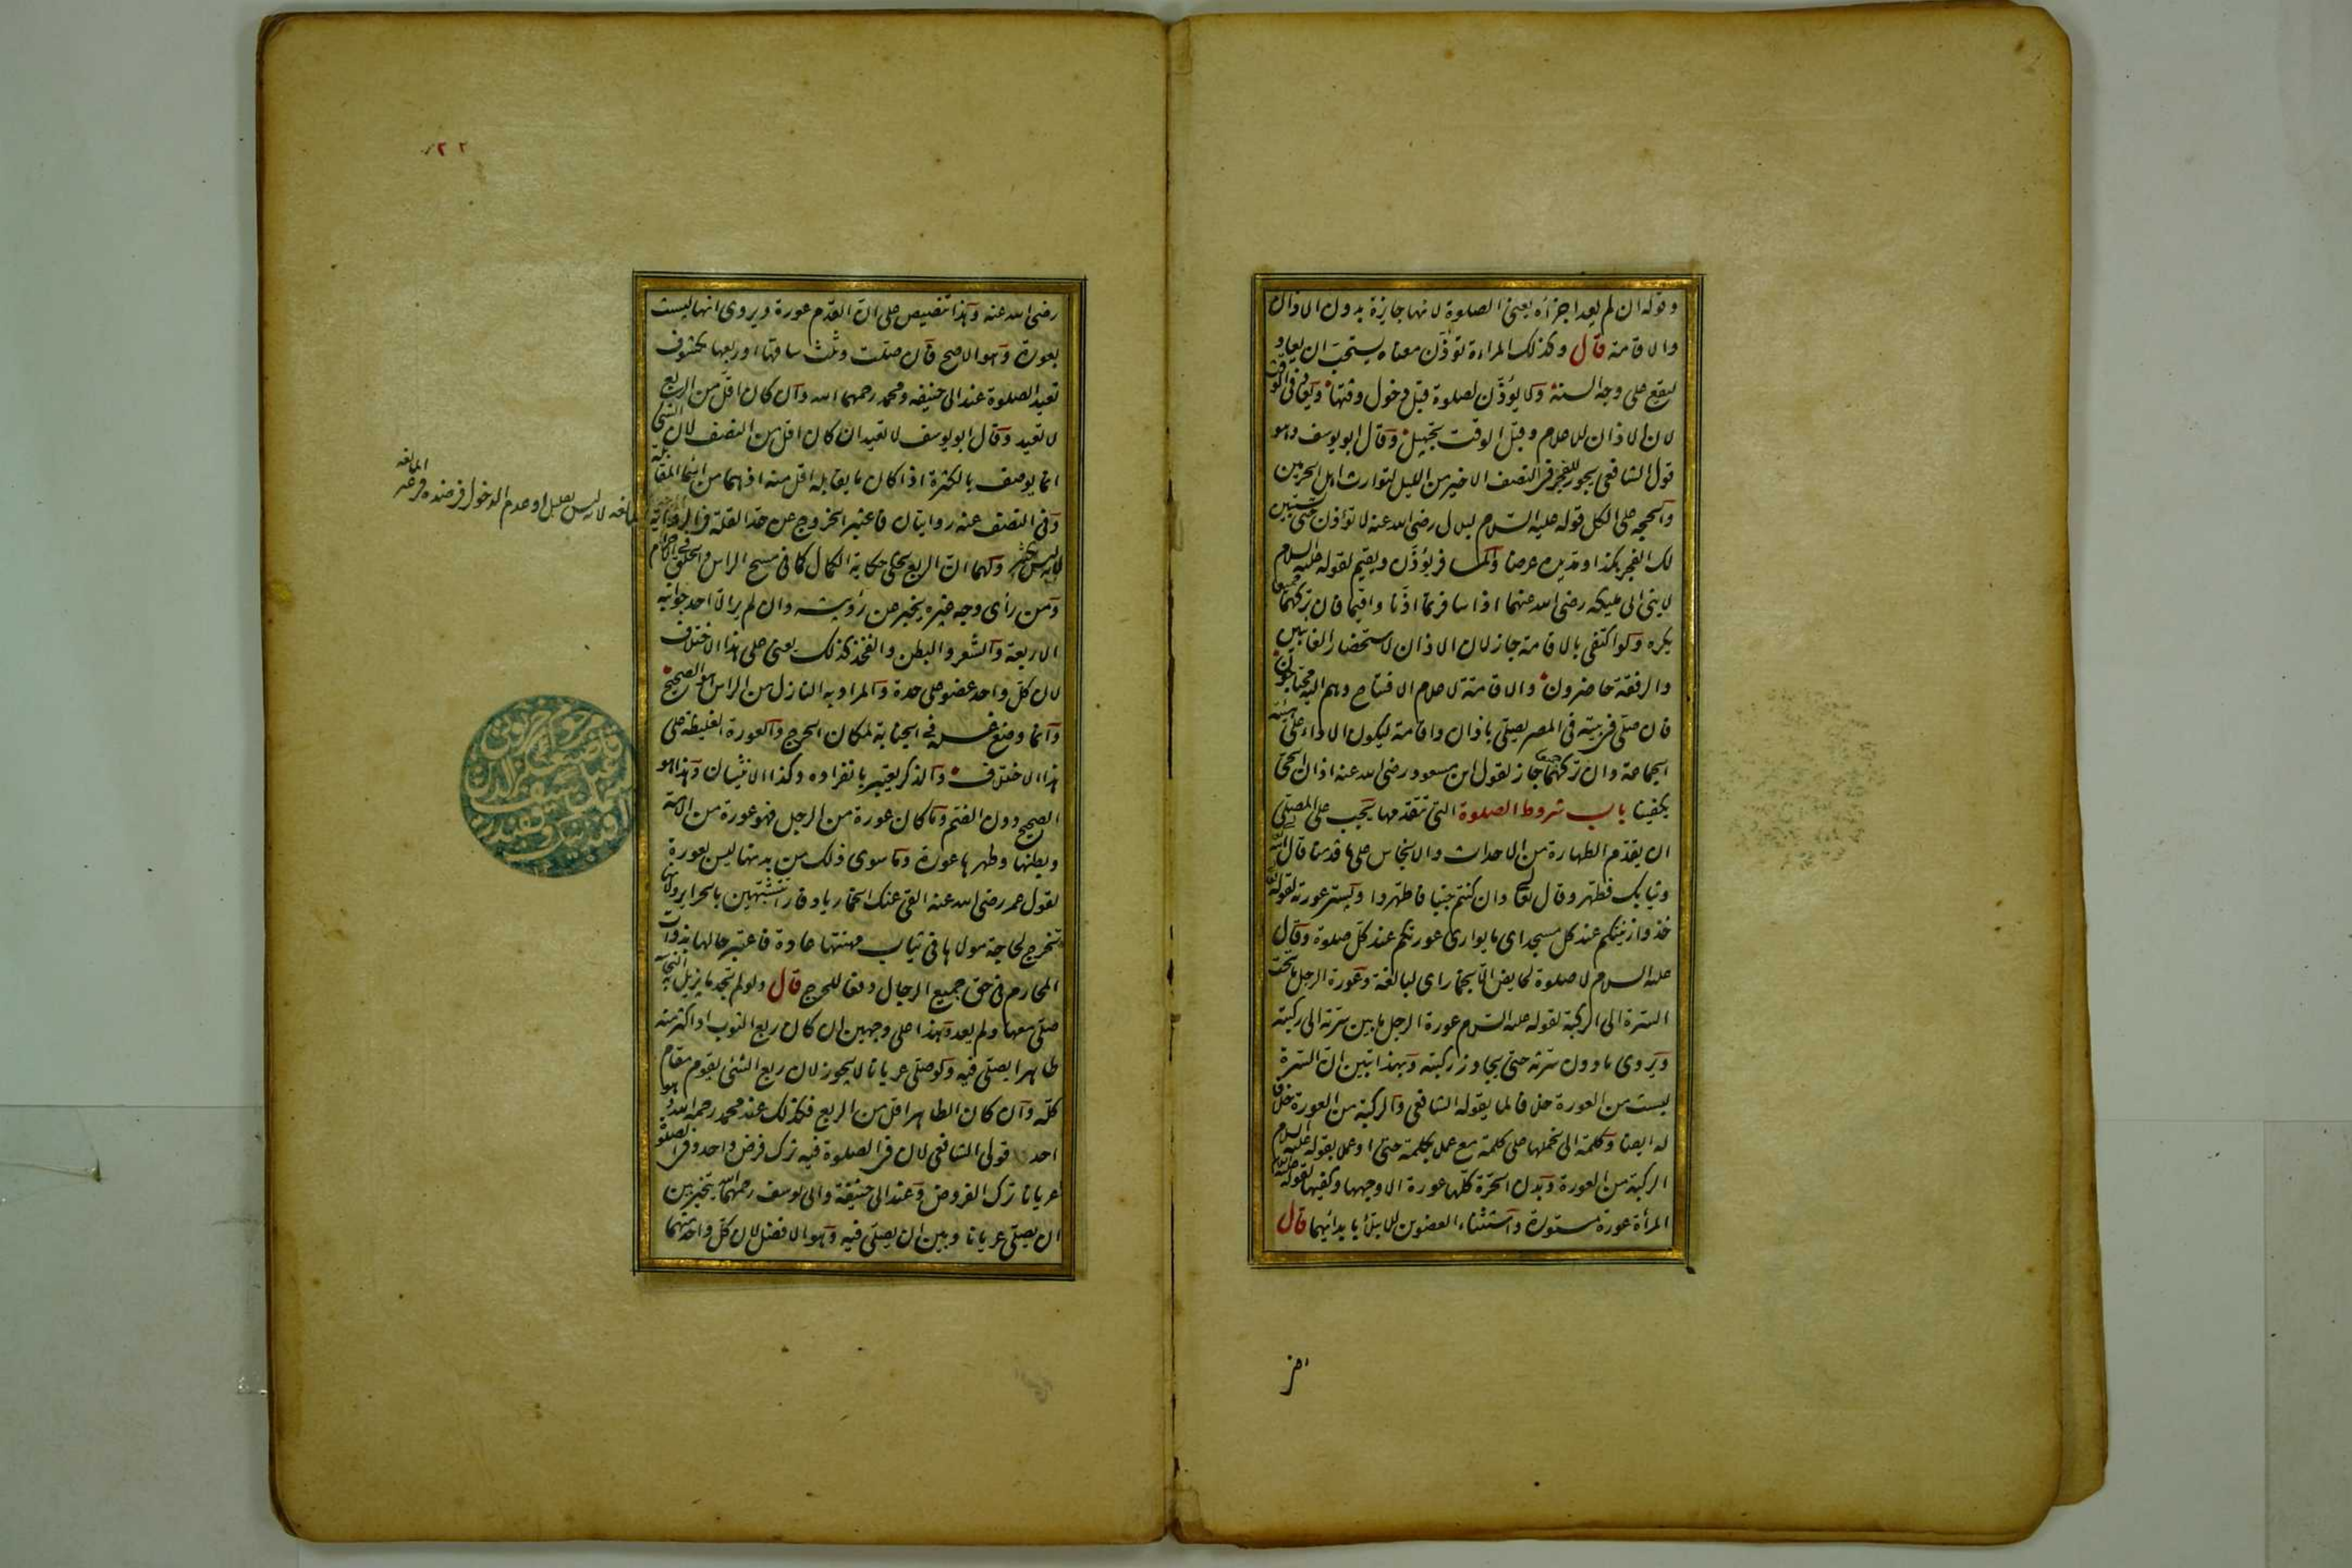 وقوله ان لم يعد اجزأه يعنى الصلوة لانها جايزة بدون الاذان
والاقامة قال وكذلك المراءة تؤذّن معناه يستحبّ ان يعاد
ليقع على وجه السنة ولا يؤذّن لصلوة قبل دخول وقتها ويعاد فى الوقت
لان الاذان للاعلام وقبل الوقت تجهيل وقال ابو يوسف وهو
قول الشافعى يجوز للفجر فى النصف الاخير من الليل لتوارث اهل الحرمين
والحجة على الكل قوله عليه السّلام لبلال رضى الله عنه لا تؤذن حتى يستبين
لك الفجر هكذا ومدّ يده عرضا والمسافر يؤذّن ويقيم لقوله عليه السلام
لابنى ابى مليكة رضى الله عنهما اذا سافرتما اذّنا واقيما فان تركهما جميعا
يكره ولو اكتفى بالاقامة جاز لان الاذان لاستحضار الغايبين
والرفقة حاضرون والاقامة لاعلام الافتتاح وهم اليه محتاجون
فان صلّى فى بيته فى المصر يصلّى باذان واقامة ليكون الاداء على هيئة
الجماعة وان تركهما جميعا جاز لقول ابن مسعود رضى الله عنه اذان الحىّ
يكفينا باب شروط الصلوة التى تتقدّمها يجب على المصلّى
ان يقدّم الطهارة من الاحداث والانجاس على ما قدمنا قال الله
وثيابك فطهر وقال تعالى وان كنتم جنبا فاطهّروا ويستر عورته لقوله تعالى
خذوا زينتكم عند كل مسجد اى ما يوارى عورتكم عند كلّ صلوة وقال
عليه السلام لا صلوة لحايض الّا بخمار اى لبالغة وعورة الرجل ما تحت
السّرة الى الركبة لقوله عليه السّلام عورة الرجل ما بين سرّته الى ركبته
ويروى ما دون سرّته حتى يجاوز ركبته وبهذا تبين انّ السّرة
ليست من العورة خلافا لما يقوله الشافعى والركبة من العورة خلافا
له ايضا وكلمة الى نحملها على كلمة مع عملا بكلمة حتى او عملا بقوله عليه السلام
الركبة من العورة وبدن الحرّة كلّها عورة الا وجهها وكفيها لقوله عليه السلام
المرأة عورة مستورة واستثناء العضوين للابتلاء بابدائهما قال
رضى الله عنه وهذا تنصيص على انّ القدم عورة ويروى انها ليست
بعورة وهو الاصح فان صلّت وثلث ساقها او ربعها مكشوف
تعيد الصلوة عند ابى حنيفه ومحمد رحمهما الله وان كان اقلّ من الربع
لا تعيد وقال ابو يوسف لا تعيد ان كان اقل من النصف لان الشئ
انما يوصف بالكثرة اذا كان ما يقابله اقل منه اذ هما من اسماء المقابلة
وفى النصف عنه روايتان فاعتبر الخروج عن حدّ القلة
ولهما انّ الربع يحكى حكاية الكمال كما فى مسح الراس والحلق فى الاحرام
ومن رأى وجه غيره يخبر عن رؤيته وان لم ير الّا احد جوانبه
الاربعة والشعر والبطن والفخذ كذلك يعنى على هذا الاختلاف
لان كلّ واحد عضو على حدة والمراد به النازل من الراس هو الصحيح
وانما وضع غسله فى الجنابة لمكان الحرج والعورة الغليظة على
هذا الاختلاف والذكر يعتبر بانفراده وكذا الانثيان وهذا هو
الصحيح دون الضم وما كان عورة من الرجل فهو عورة من الامة
وبطنها وظهرها عورة وما سوى ذلك من بدنها ليس بعورة
لقول عمر رضى الله عنه القى عنك الخمار يا دفار اتتشبّهين بالحراير ولانها
تخرج لحاجة مولاها فى ثياب مهنتها عادة فاعتبر حالها بذوات
المحارم فى حق جميع الرجال دفعا للحرج قال ولو لم يجد ما يزيل به النجاسة
صلّى معها ولم يعد وهذا على وجهين ان كان ربع الثوب او اكثر منه
طاهرا يصلّى فيه ولو صلّى عريانا لا يجوز لان ربع الشئ يقوم مقام
كلّه وان كان الطاهر اقل من الربع فكذلك عند محمد رحمه الله وهو
احد قولى الشافعى لان فى الصلوة فيه ترك فرض واحد وفى الصلوة
عريانا ترك الفروض وعند ابى حنيفة وابى يوسف رحمهما الله يتخير بين
ان يصلّى عريانا وبين ان يصلّى فيه وهو الافضل لان كلّ واحد منهما